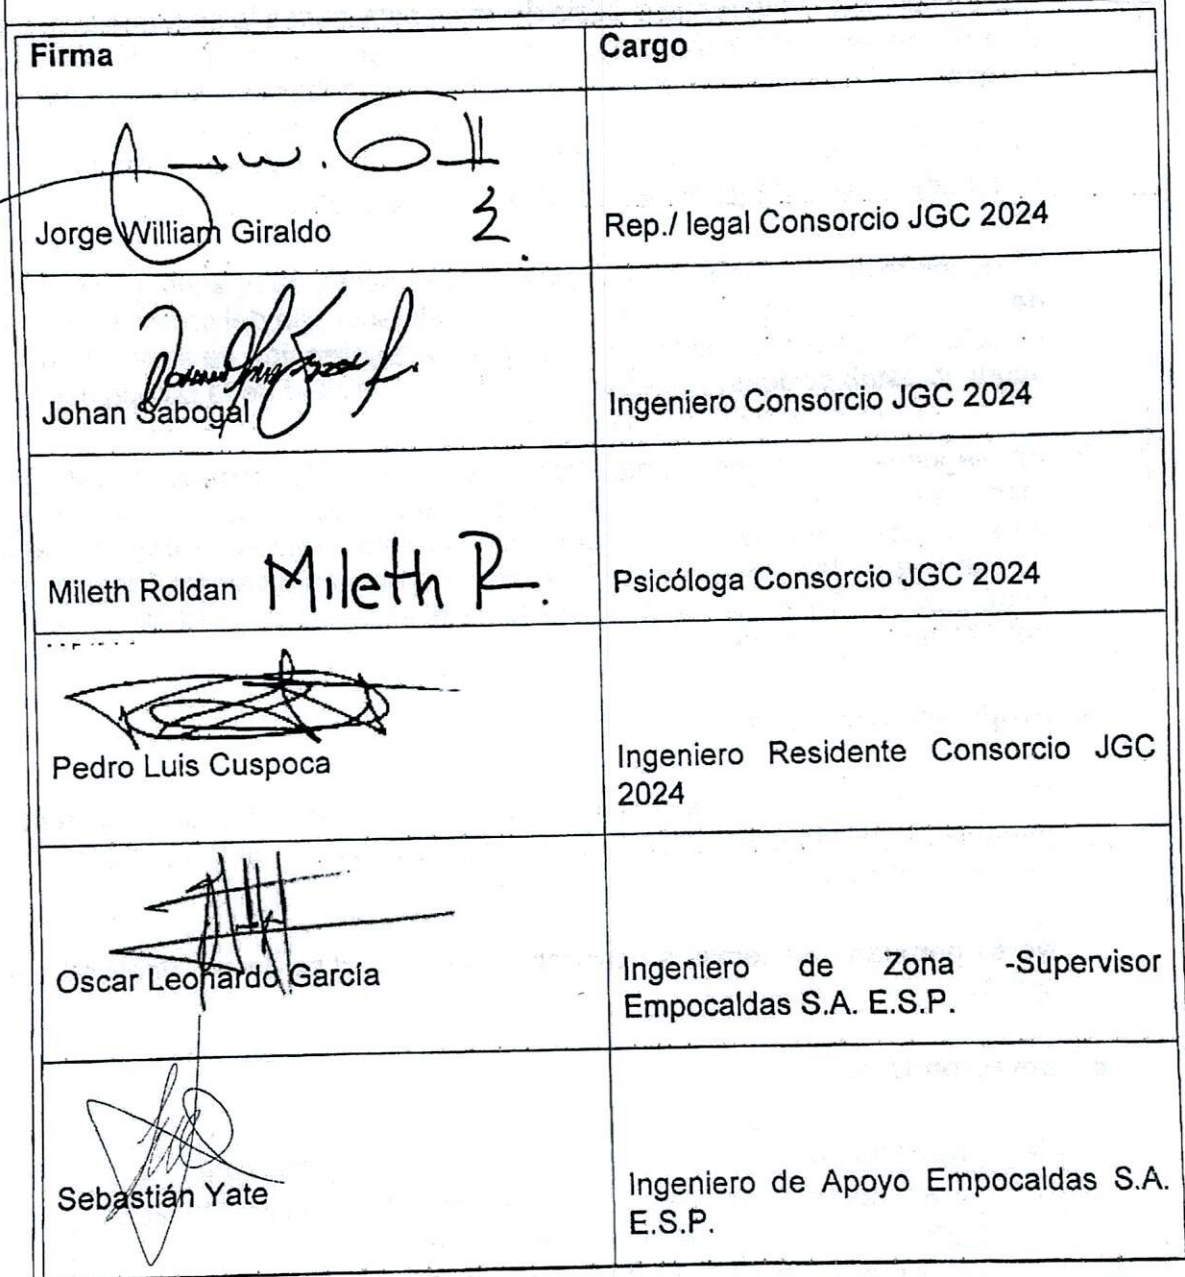 Firma
Cargo
Jorge William Giraldo
Rep./ legal Consorcio JGC 2024
Johan Sabogal
Ingeniero Consorcio JGC 2024
Mileth Roldan Mileth R.
Psicóloga Consorcio JGC 2024
Pedro Luis Cuspoca
Ingeniero Residente Consorcio JGC
2024
Oscar Leonardo García
Ingeniero de Zona -Supervisor
Empocaldas S.A. E.S.P.
Sebastián Yate
Ingeniero de Apoyo Empocaldas S.A.
E.S.P.